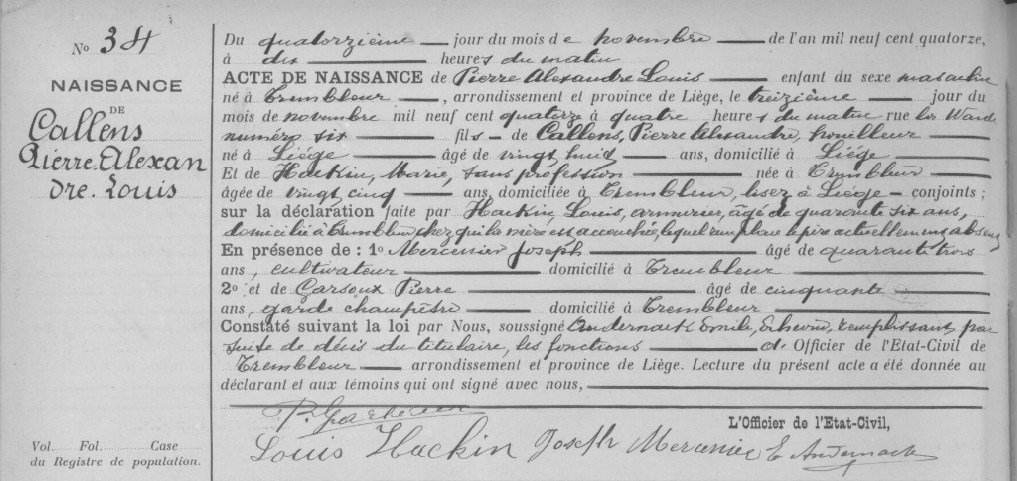 No 34
NAISSANCE
DE
Callens
Pierre Alexan
dre. Louis
Vol. Fol. Case
du Registre de population.
Du quatorzième jour du mois de novembre de l'an mil neuf cent quatorze,
à dix heures du matin
ACTE DE NAISSANCE de Pierre Alexandre Louis enfant du sexe masculin
né à Trembleur, arrondissement et province de Liége, le treizième jour du
mois de novembre mil neuf cent quatorze à quatre heures du matin rue
numéro six fils de Callens, Pierre Alexandre, houilleur
né à Liége âgé de vingt huit ans, domicilié à Liége
Et de Hackin, Marie, sans profession née à Trembleur
âgée de vingt cinq ans, domiciliée à Trembleur, lisez à Liége conjoints ;
sur la déclaration faite par Hackin, Louis, armurier, âgé de quarante six ans,
domicilié à Trembleur, chez qui la mère est accouchée, lequel remplace le père actuellement absent
En présence de : 1o Mercenier Joseph âgé de quarante trois
ans, cultivateur domicilié à Trembleur
2o et de Garsoux Pierre âgé de cinquante
ans, garde champêtre domicilié à Trembleur
Constaté suivant la loi par Nous, soussigné Andernack Emile, Echevin, remplissant par
suite de décès du titulaire, les fonctions d'Officier de l'Etat-Civil de
Trembleur arrondissement et province de Liége. Lecture du présent acte a été donnée au
déclarant et aux témoins qui ont signé avec nous,
L'Officier de l'Etat-Civil,
Louis Hackin Joseph Mercenier E Andernack